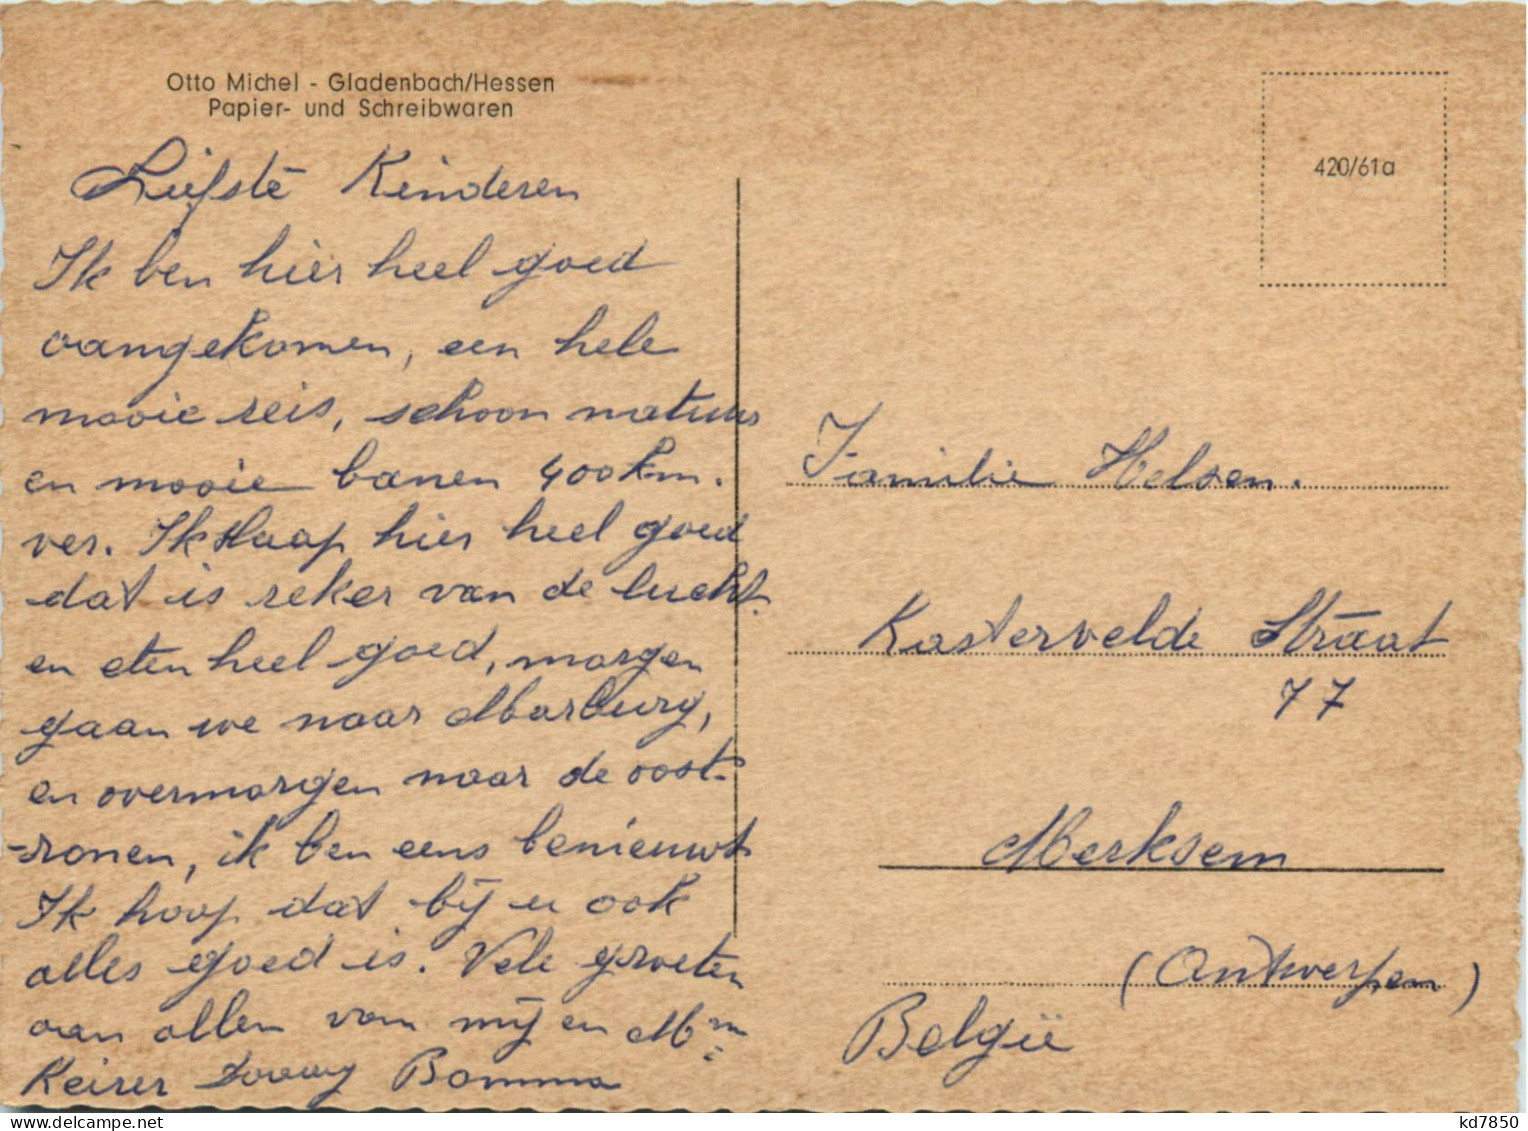 Otto Michel - Gladenbach/Hessen
Papier- und Schreibwaren
420/61a
Liefste Kinderen
Ik ben hier heel goed
aangekomen, een hele
mooie reis, schoon natuur
en mooie banen 400 km.
ver. Ik slaap hier heel goed
dat is zeker van de lucht.
en eten heel goed, morgen
gaan we naar Marburg,
en overmorgen naar de oost-
-zonen, ik ben eens benieuwt
Ik hoop dat bij u ook
alles goed is. Vele groeten
aan allen van mij en Mm
Keizer Bomma
Familie Helsen.
Kastervelde Straat
77
Merksem
(Antwerpen)
België
kd7850